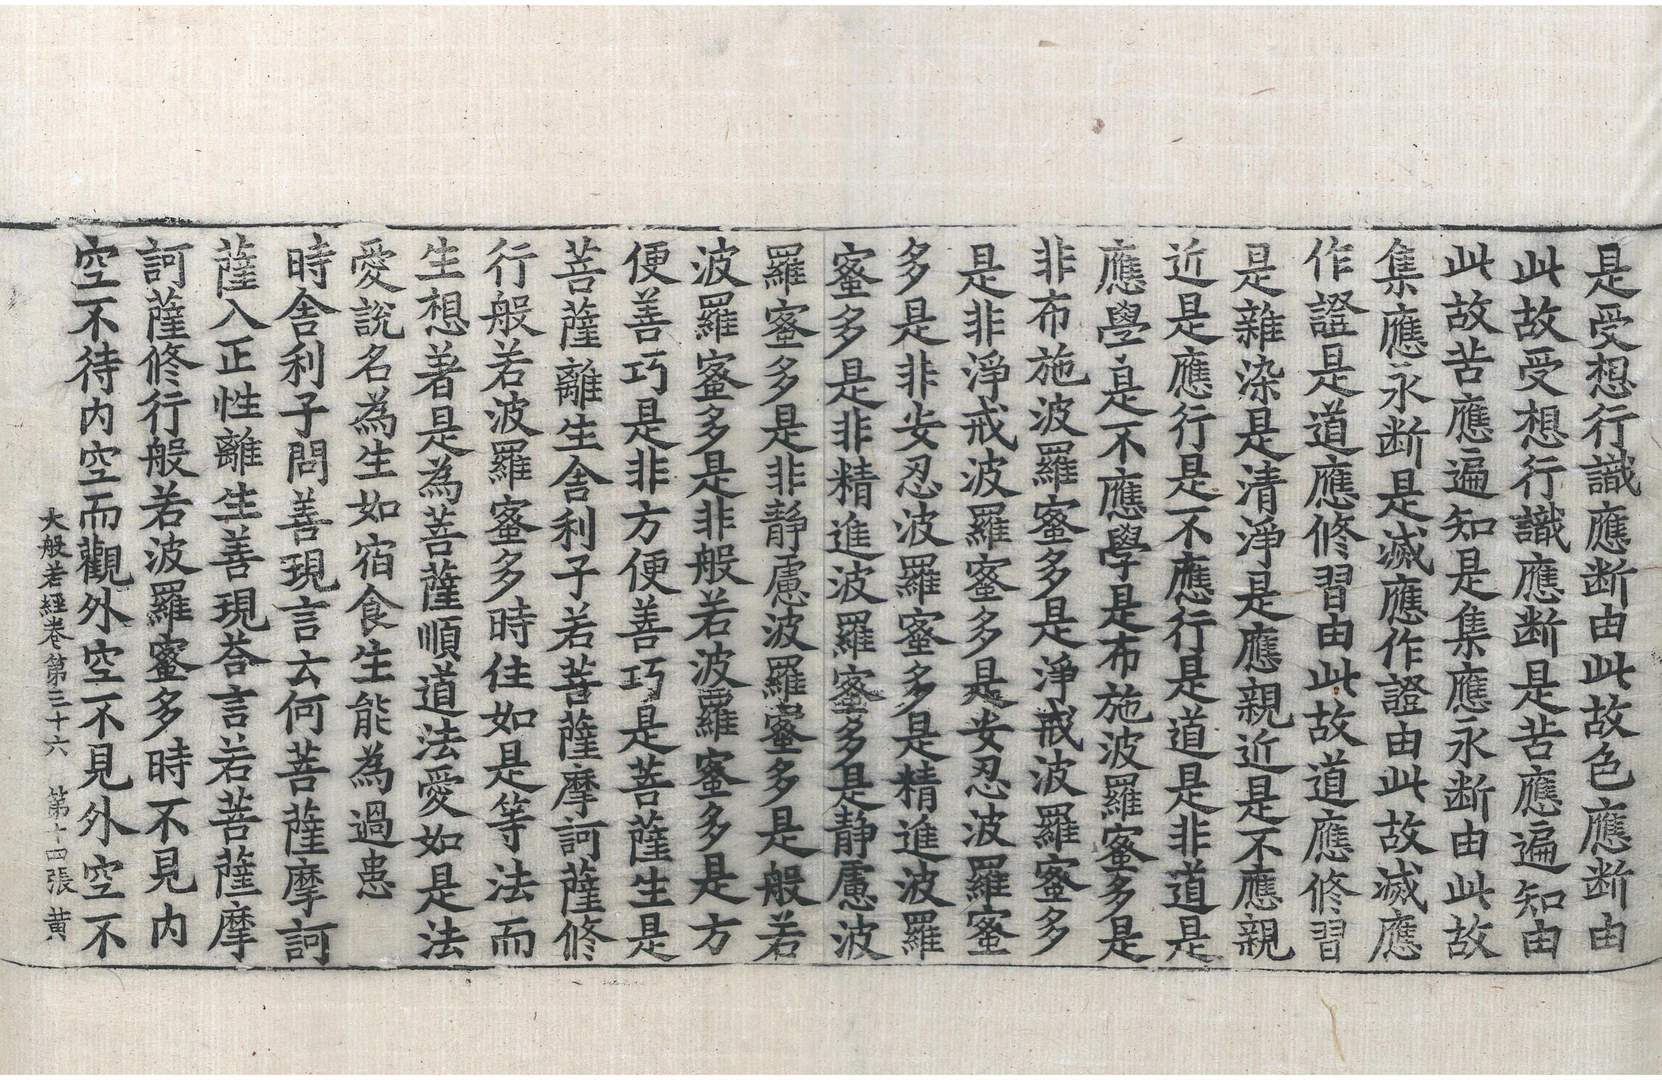 是受想行識應断由此故色應断由
此故受想行識應断是苦應遍知由
此故苦應遍知是集應永断由此故
集應永断是滅應作證由此故滅應
作證是道應修習由此故道應修習
是雜染是清淨是應親近是不應親
近是應行是不應行是道是非道是
應學是不應學是布施波羅蜜多是
非布施波羅蜜多是淨戒波羅蜜多
是非淨戒波羅蜜多是安忍波羅蜜
多是非安忍波羅蜜多是精進波羅
蜜多是非精進波羅蜜多是静慮波
羅蜜多是非静慮波羅蜜多是般若
波羅蜜多是非般若波羅蜜多是方
便善巧是非方便善巧是菩薩生是
菩薩離生舍利子若菩薩摩訶薩修
行般若波羅蜜多時住如是等法而
生想著是為菩薩順道法愛如是法
愛說名為生如宿食生能為過患
時舍利子問善現言云何菩薩摩訶
薩入正性離生善現荅言若菩薩摩
訶薩修行般若波羅蜜多時不見內
空不待內空而觀外空不見外空不
大般若經卷第三十六 第十四張 黄